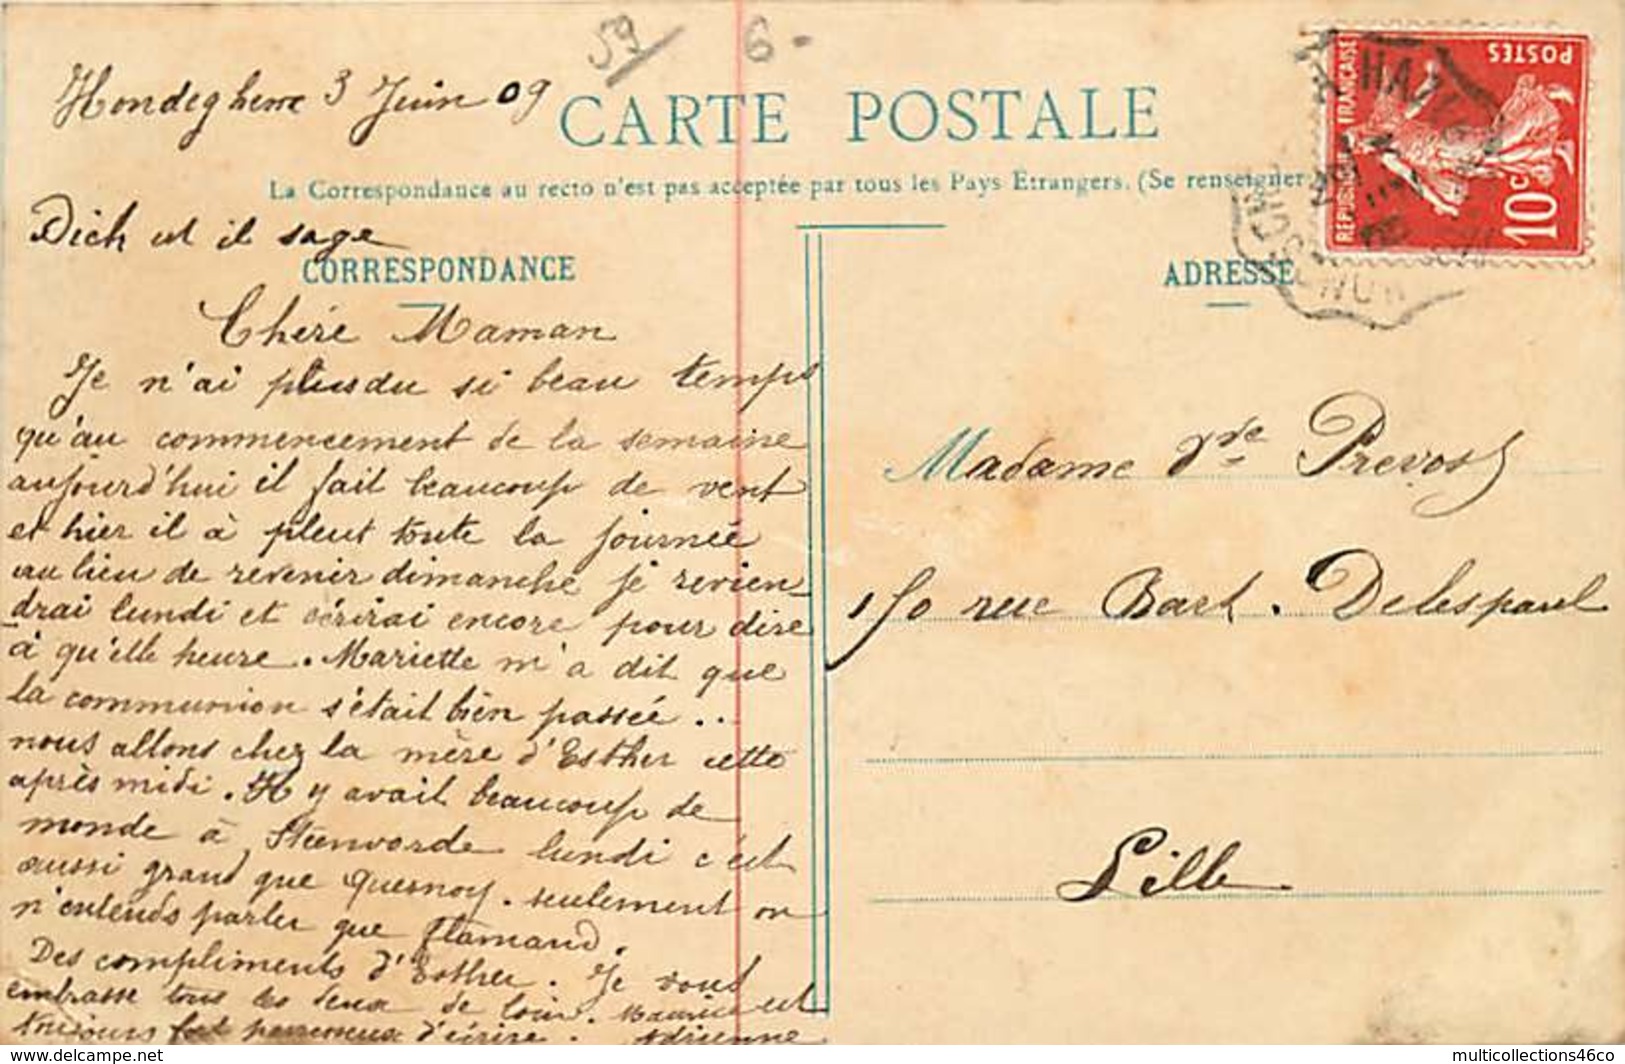 59
6-
Hondeghem 3 Juin 09
CARTE POSTALE
La Correspondance au recto n'est pas acceptée par tous les Pays Etrangers. (Se renseigner
Dick est il sage
CORRESPONDANCE
Chére Maman
Je n'ai plus du si beau temps
qu'au commencement de la semaine
aujourd'hui il fait beaucoup de vent
et hier il à pleut toute la journée
au lieu de revenir dimanche je revien-
drai lundi et écrirai encore pour dire
à qu'elle heure. Mariette m'a dit que
la communion s'était bien passée ..
nous allons chez la mère d'Esther cette
après midi. Il y avait beaucoup de
monde à Steenvorde lundi c'est
aussi grand que Quesnoy. seulement on
n'entends parler que flamand.
Des compliments d'Esther. Je vous
embrasse tous les deux de loin. Maurice est
toujours fort paresseux d'écrire. Adrienne
ADRESSE
REPUBLIQUE FRANÇAISE
POSTES
10c
Madame Vve Prevost
150 rue Bart. Delespaul
Lille
multicollections46co